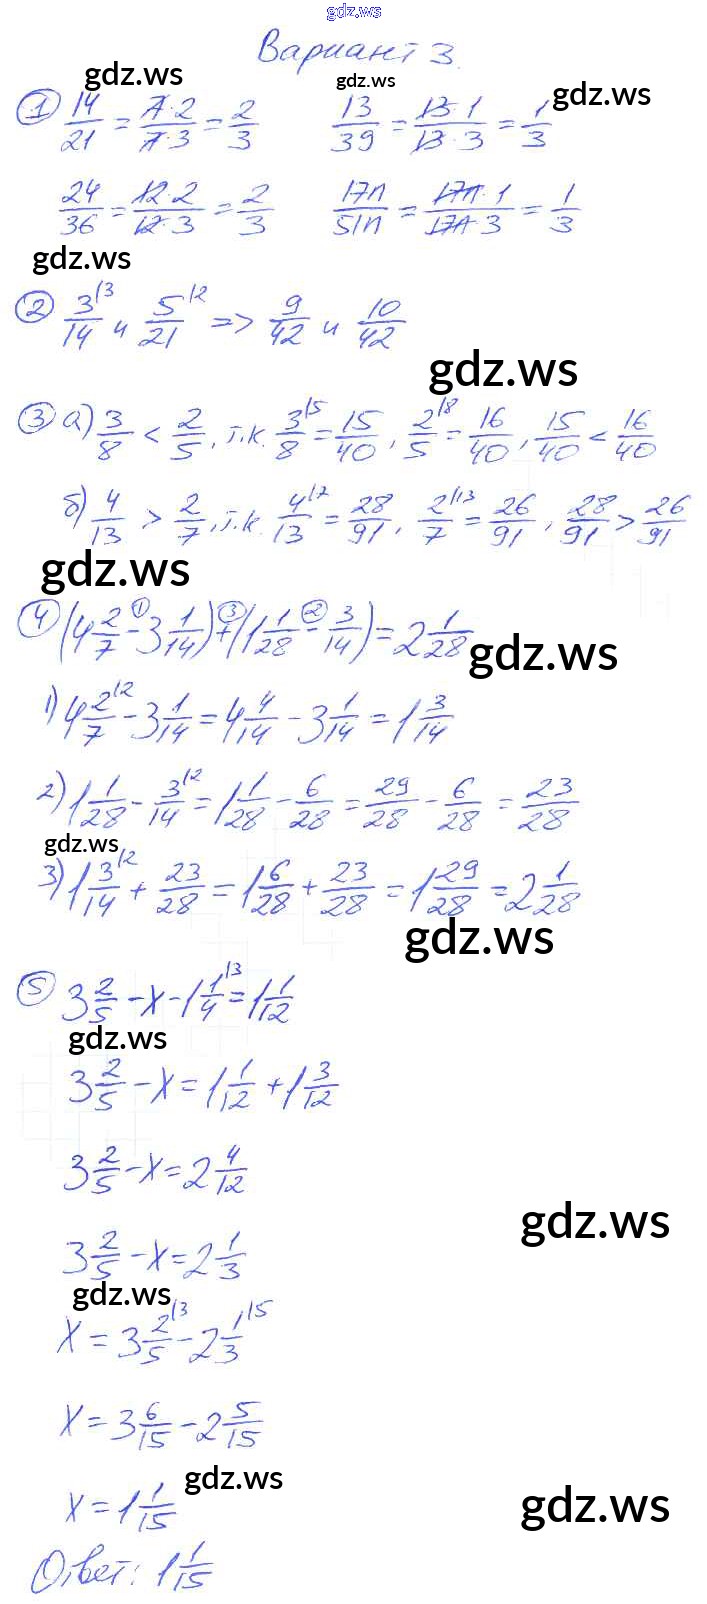 gdz.ws
Вариант 3.
gdz.ws gdz.ws gdz.ws
① 14/21 = 7·2/7·3 = 2/3 13/39 = 13·1/13·3 = 1/3
24/36 = 12·2/12·3 = 2/3 17n/51n = 17n·1/17n·3 = 1/3
gdz.ws
② 3/14 \3 и 5/21 \2 => 9/42 и 10/42
gdz.ws
③ а) 3/8 < 2/5, т.к. 3/8 \5 = 15/40, 2/5 \8 = 16/40, 15/40 < 16/40
б) 4/13 > 2/7, т.к. 4/13 \7 = 28/91, 2/7 \13 = 26/91, 28/91 > 26/91
gdz.ws
④ (4 2/7 -① 3 1/14) +③ (1 1/28 -② 3/14) = 2 1/28
gdz.ws
1) 4 2/7 \2 - 3 1/14 = 4 4/14 - 3 1/14 = 1 3/14
2) 1 1/28 - 3/14 \2 = 1 1/28 - 6/28 = 29/28 - 6/28 = 23/28
gdz.ws
3) 1 3/14 \2 + 23/28 = 1 6/28 + 23/28 = 1 29/28 = 2 1/28
gdz.ws
⑤ 3 2/5 - x - 1 1/4 \3 = 1 1/12
gdz.ws
3 2/5 - x = 1 1/12 + 1 3/12
3 2/5 - x = 2 4/12
gdz.ws
3 2/5 - x = 2 1/3
gdz.ws
x = 3 2/5 \3 - 2 1/3 \5
x = 3 6/15 - 2 5/15
gdz.ws
x = 1 1/15
gdz.ws
Ответ: 1 1/15